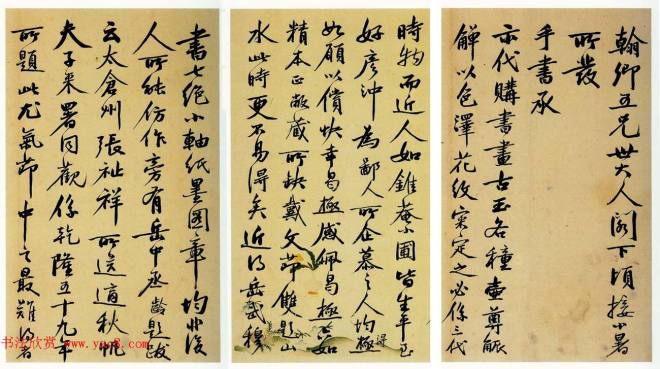 翰卿五兄世大人阁下顷接小暑
所发
手書承
示代購書畫古玉各種壺尊觚
觯以色澤花紋審定之必係三代
時物而近人如錐菴小圃皆生平至
好彦沖為鄙人所企慕之人均極
如願以償快幸曷極感佩曷極
精本正敝蔵所缺戴文節雙題山
水此時更不易得矣近得岳武穆
書七絶小軸紙墨圖章均非後
人所能仿作旁有岳中丞題跋
云太倉州張祉祥所送適秋帆
夫子来署同觀係乾隆五十九年
所題此尤氣節中之最難得者
书法欣赏 www.yac8.com